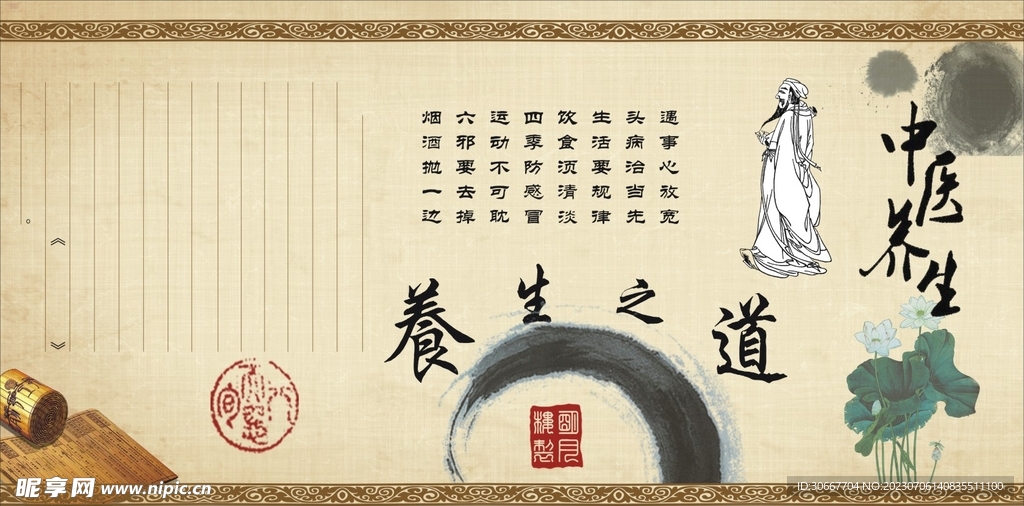 中医养生
遇事心放宽
头病治当先
生活要规律
饮食须清淡
四季防感冒
运动不可耽
六邪要去掉
烟酒抛一边
。
《 》
養生之道
明月
樓製
昵享网 www.nipic.cn
ID:30667704 NO:20230706140835511100